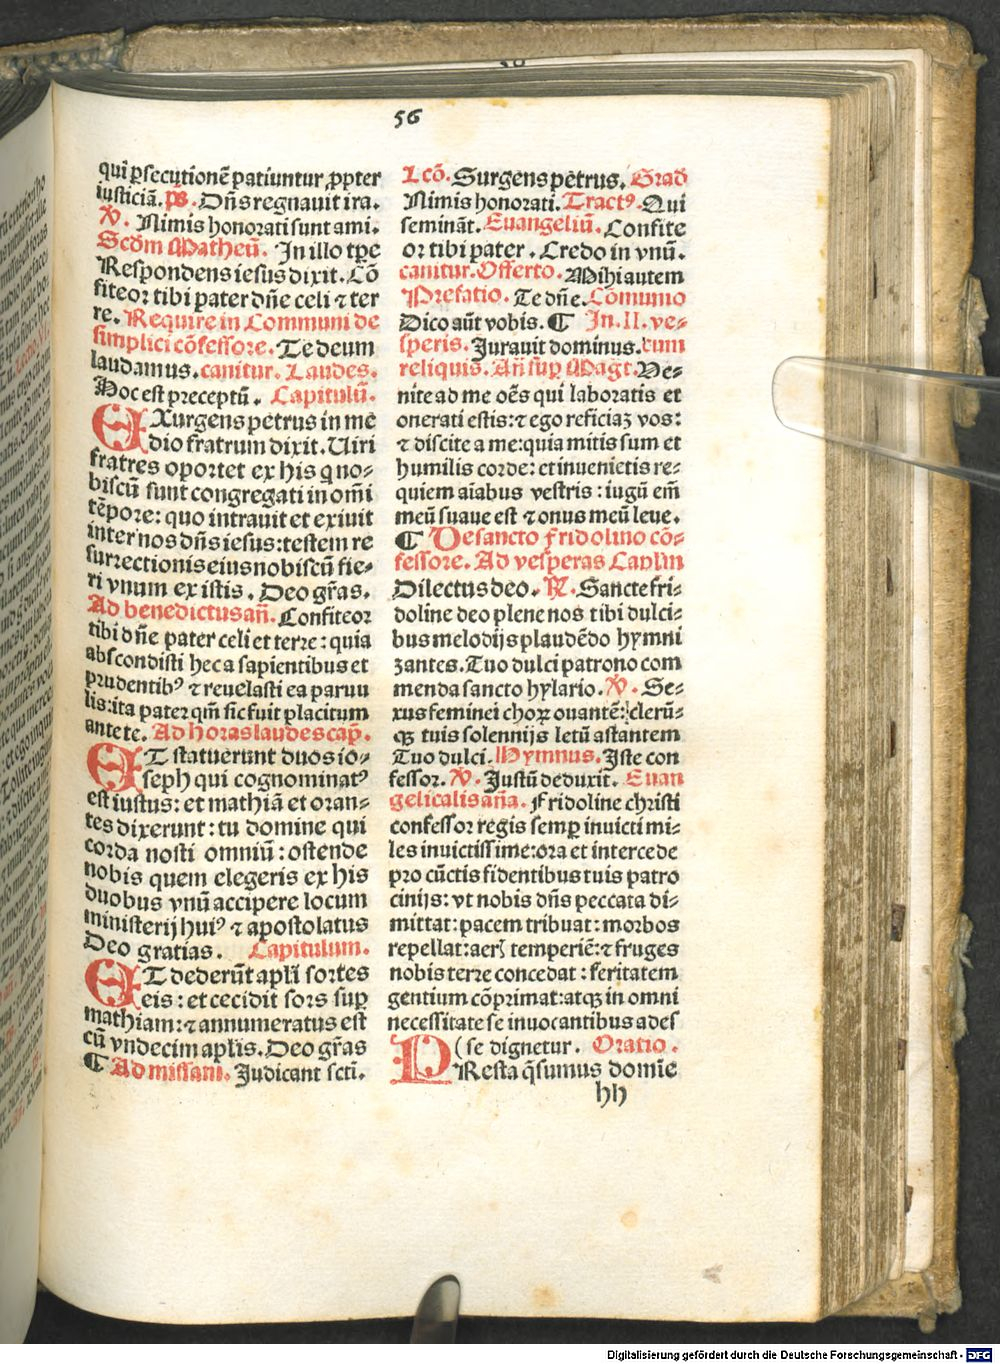 56
qui ꝑsecutionē patiuntur ꝓpter
iusticiā. ps. Dn̄s regnauit ira.
℣. Nimis honorati sunt ami.
Scdm Matheū. In illo tꝑe
Respondens iesus dixit. Cō
fiteor tibi pater dn̄e celi ⁊ ter
re. Require in Communi de
simplici cōfessore. Te deum
laudamus. canitur. Laudes.
Hoc est preceptū. Capitulū.
EXurgens petrus in me
dio fratrum dixit. Uiri
fratres oportet ex his q no⸗
biscū sunt congregati in om̄i
tēpore: quo intrauit et exiuit
inter nos dn̄s iesus: testem re
surrectionis eius nobiscū fie⸗
ri vnum ex istis. Deo gr̄as.
Ad benedictus an̄. Confiteor
tibi dn̄e pater celi et terre: quia
abscondisti hec a sapientibus et
prudentibꝰ ⁊ reuelasti ea paruu
lis: ita pater qm̄ sic fuit placitum
ante te. Ad horas laudes cap̄.
ET statuerunt duos io⸗
seph qui cognominatꝰ
est iustus: et mathiā et oran⸗
tes dixerunt: tu domine qui
corda nosti omniū: ostende
nobis quem elegeris ex his
duobus vnū accipere locum
ministerij huiꝰ ⁊ apostolatus
Deo gratias. Capitulum.
ET dederūt apli sortes
eis: et cecidit sors suꝑ
mathiam: ⁊ annumeratus est
cū vndecim aplis. Deo gr̄as
¶ Ad missam. Judicant scti.
Lcō. Surgens petrus. Grad
Nimis honorati. Tractꝰ. Qui
semināt. Euangeliū. Confite
or tibi pater. Credo in vnū.
canitur. Offerto. Mihi autem
Prefatio. Te dn̄e. Cōmunio
Dico aūt vobis. ¶ In. II. ve⸗
speris. Jurauit dominus. cum
reliquis. An̄ suꝑ Magt̄. Ve⸗
nite ad me oēs qui laboratis et
onerati estis: ⁊ ego reficiaꝫ vos:
⁊ discite a me: quia mitis sum et
humilis corde: et inuenietis re⸗
quiem aīabus vestris: iugū em̄
meū suaue est ⁊ onus meū leue.
¶ De sancto fridolino cō⸗
fessore. Ad vesperas Caplm
Dilectus deo. ℟. Sancte fri⸗
doline deo plene nos tibi dulci⸗
bus melodijs plaudēdo hymni
zantes. Tuo dulci patrono com
menda sancto hylario. ℣. Se⸗
xus feminei choꝝ ouantē: clerū⸗
qꝫ tuis solennijs letū astantem
Tuo dulci. Hymnus. Iste con
fessor. ℣. Justū deduxit. Euan
gelicalis an̄a. Fridoline christi
confessor regis semꝑ inuicti mi⸗
les inuictissime: ora et intercede
pro cūctis fidentibus tuis patro
cinijs: vt nobis dn̄s peccata di⸗
mittat: pacem tribuat: morbos
repellat: aer temperiē: ⁊ fruges
nobis terre concedat: feritatem
gentium cōprimat: atqꝫ in omni
necessitate se inuocantibus ades
(se dignetur. Oratio.
PResta q̄sumus domīe
hh
Digitalisierung gefördert durch die Deutsche Forschungsgemeinschaft - DFG